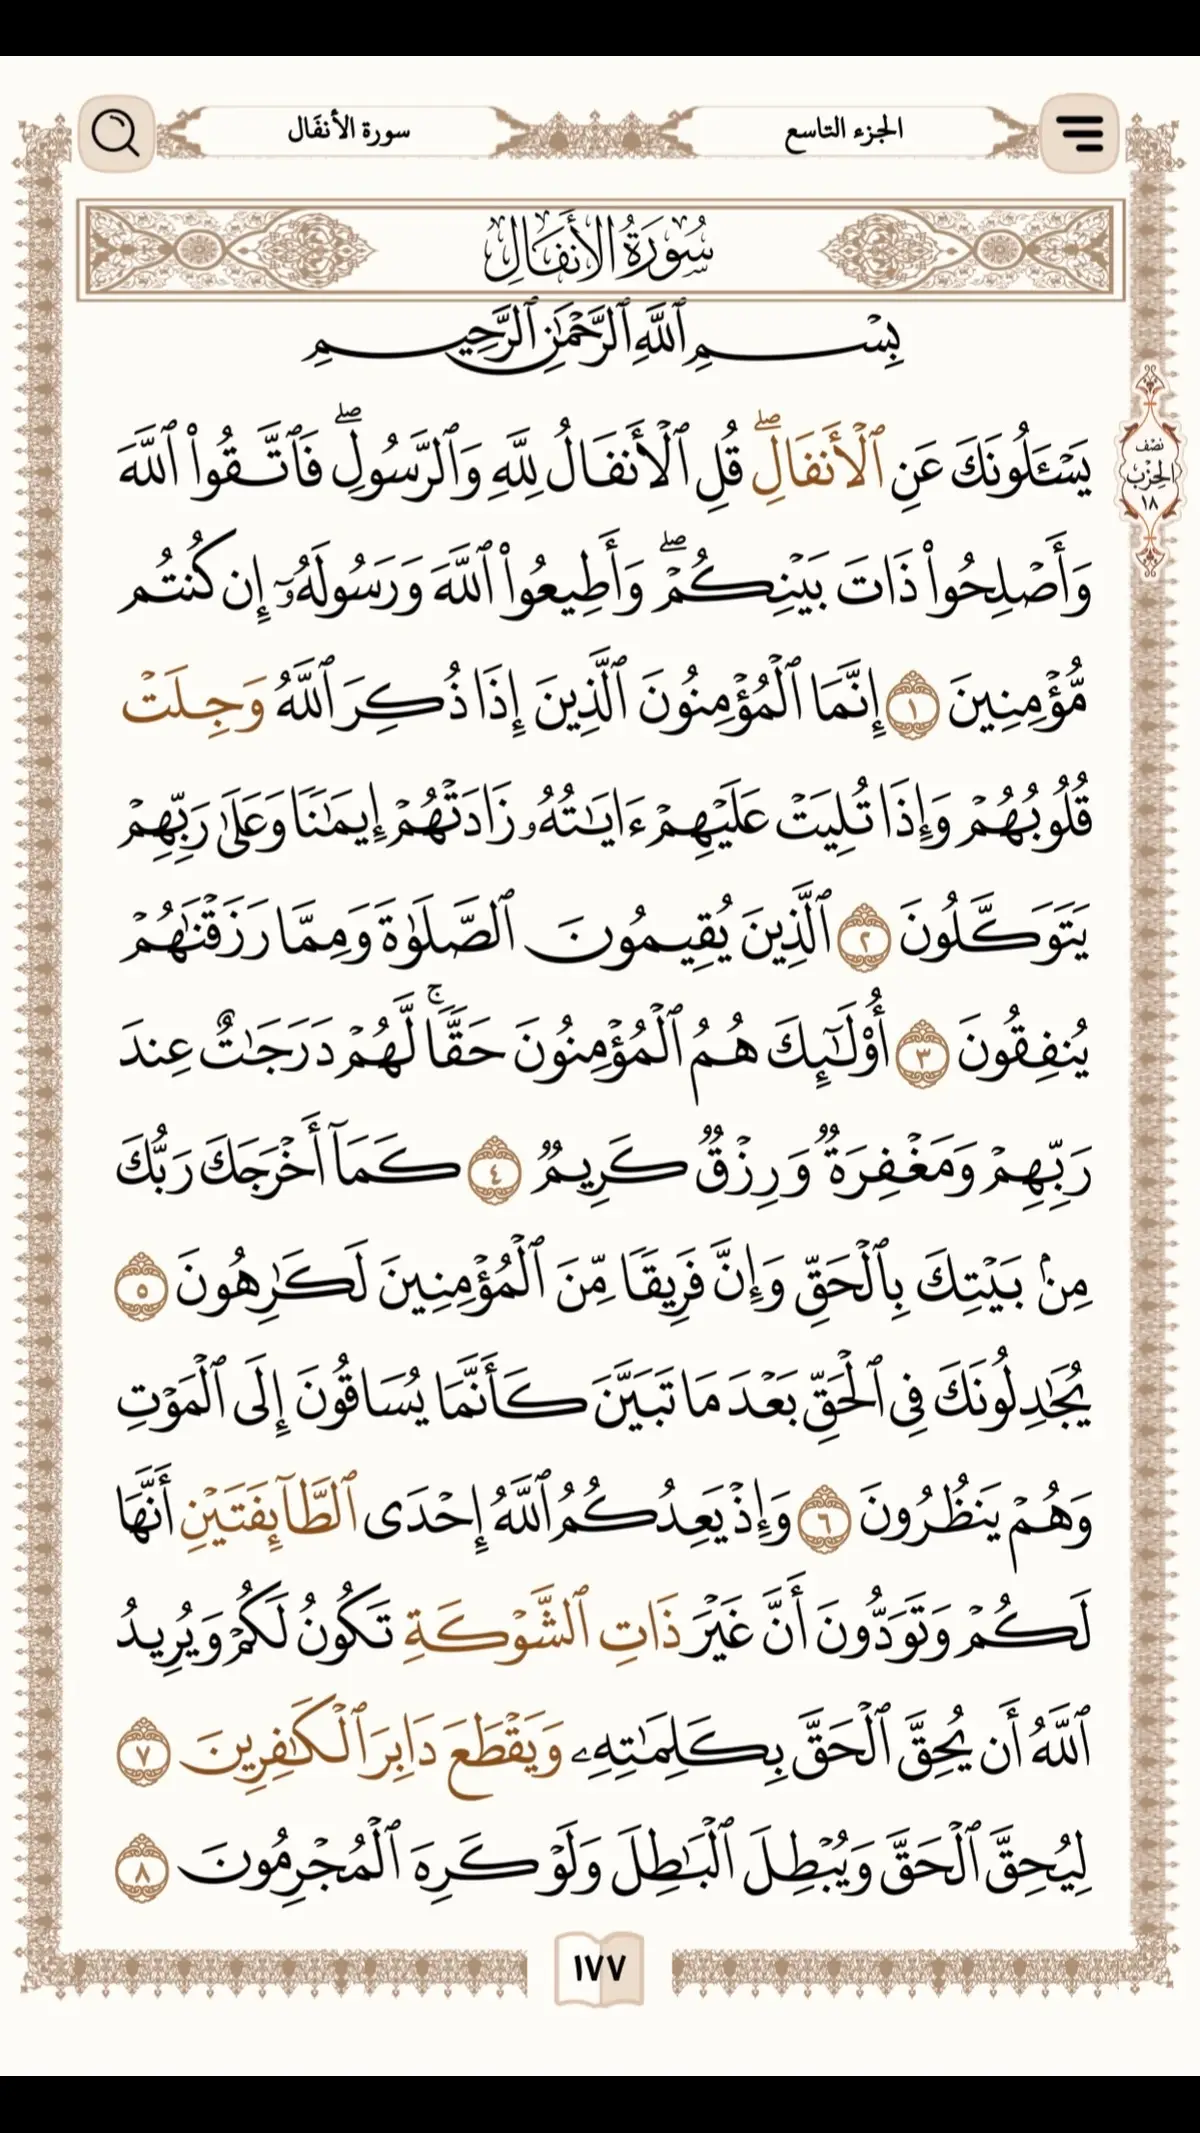 الجزء التاسع
سورة الأنفَال
سُورَةُ الأَنفَالِ
بِسْمِ ٱللَّهِ ٱلرَّحْمَٰنِ ٱلرَّحِيمِ
نصف
الحِزْب
١٨
يَسْـَٔلُونَكَ عَنِ ٱلْأَنفَالِۖ قُلِ ٱلْأَنفَالُ لِلَّهِ وَٱلرَّسُولِۖ فَٱتَّقُوا۟ ٱللَّهَ
وَأَصْلِحُوا۟ ذَاتَ بَيْنِكُمْۖ وَأَطِيعُوا۟ ٱللَّهَ وَرَسُولَهُۥٓ إِن كُنتُم
مُّؤْمِنِينَ ١ إِنَّمَا ٱلْمُؤْمِنُونَ ٱلَّذِينَ إِذَا ذُكِرَ ٱللَّهُ وَجِلَتْ
قُلُوبُهُمْ وَإِذَا تُلِيَتْ عَلَيْهِمْ ءَايَـٰتُهُۥ زَادَتْهُمْ إِيمَـٰنًا وَعَلَىٰ رَبِّهِمْ
يَتَوَكَّلُونَ ٢ ٱلَّذِينَ يُقِيمُونَ ٱلصَّلَوٰةَ وَمِمَّا رَزَقْنَـٰهُمْ
يُنفِقُونَ ٣ أُو۟لَـٰٓئِكَ هُمُ ٱلْمُؤْمِنُونَ حَقًّاۚ لَّهُمْ دَرَجَـٰتٌ عِندَ
رَبِّهِمْ وَمَغْفِرَةٌ وَرِزْقٌ كَرِيمٌ ٤ كَمَآ أَخْرَجَكَ رَبُّكَ
مِنۢ بَيْتِكَ بِٱلْحَقِّ وَإِنَّ فَرِيقًا مِّنَ ٱلْمُؤْمِنِينَ لَكَـٰرِهُونَ ٥
يُجَـٰدِلُونَكَ فِى ٱلْحَقِّ بَعْدَ مَا تَبَيَّنَ كَأَنَّمَا يُسَاقُونَ إِلَى ٱلْمَوْتِ
وَهُمْ يَنظُرُونَ ٦ وَإِذْ يَعِدُكُمُ ٱللَّهُ إِحْدَى ٱلطَّآئِفَتَيْنِ أَنَّهَا
لَكُمْ وَتَوَدُّونَ أَنَّ غَيْرَ ذَاتِ ٱلشَّوْكَةِ تَكُونُ لَكُمْ وَيُرِيدُ
ٱللَّهُ أَن يُحِقَّ ٱلْحَقَّ بِكَلِمَـٰتِهِۦ وَيَقْطَعَ دَابِرَ ٱلْكَـٰفِرِينَ ٧
لِيُحِقَّ ٱلْحَقَّ وَيُبْطِلَ ٱلْبَـٰطِلَ وَلَوْ كَرِهَ ٱلْمُجْرِمُونَ ٨
١٧٧